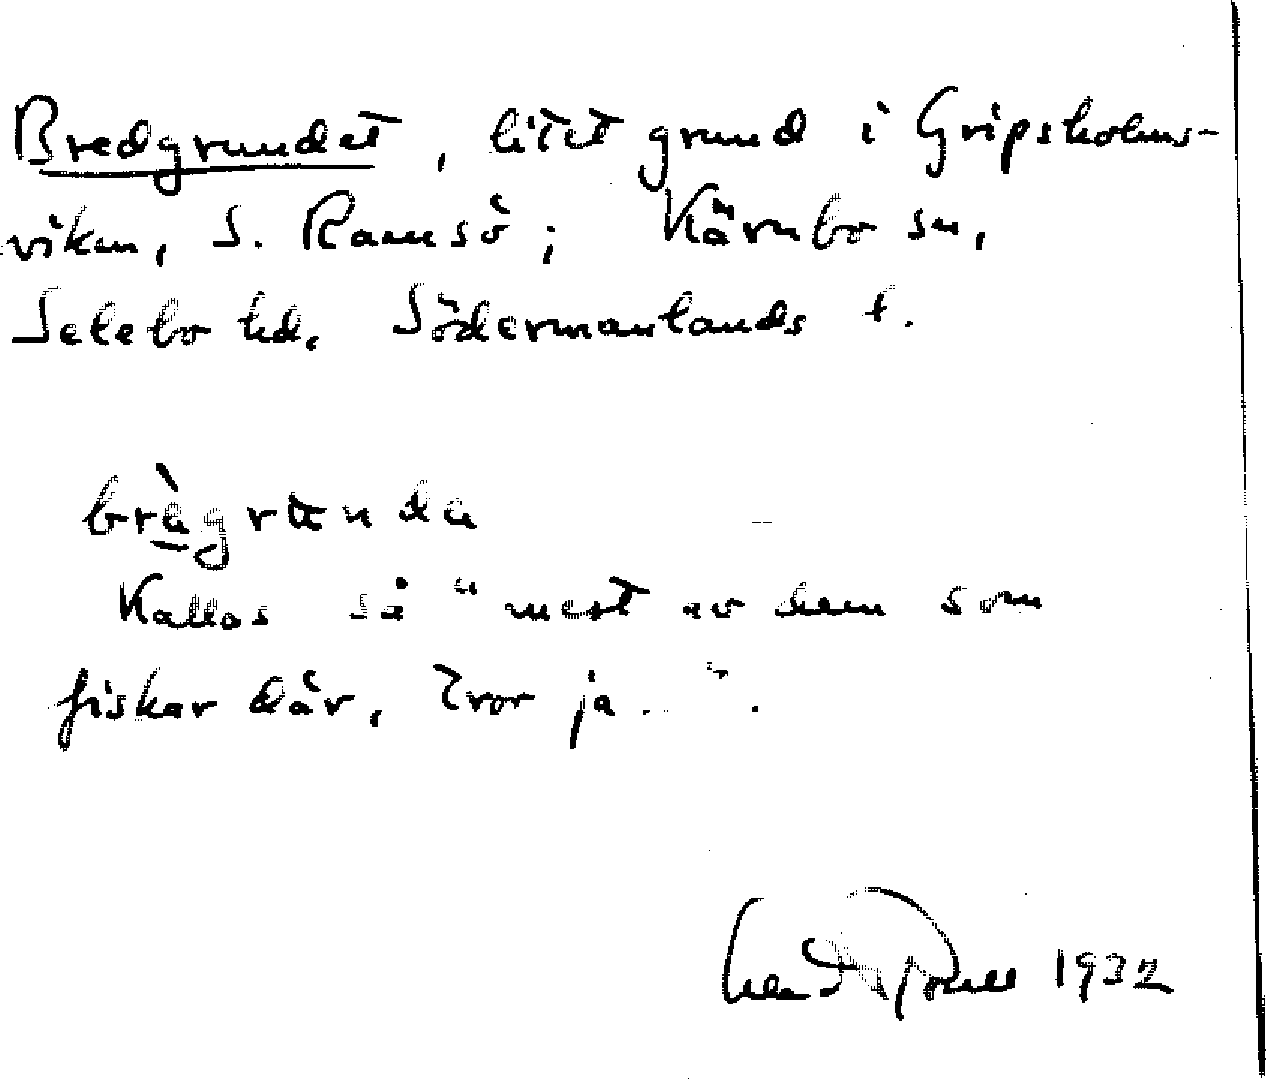 Bredgrundet, litet grund i Gripsholms-
viken, S. Ramsö; Kärnbo sn,
Selebo hd, Södermanlands l.
bràgrunda
Kallas så "mest av dem som
fiskar där, tror ja..".
1932